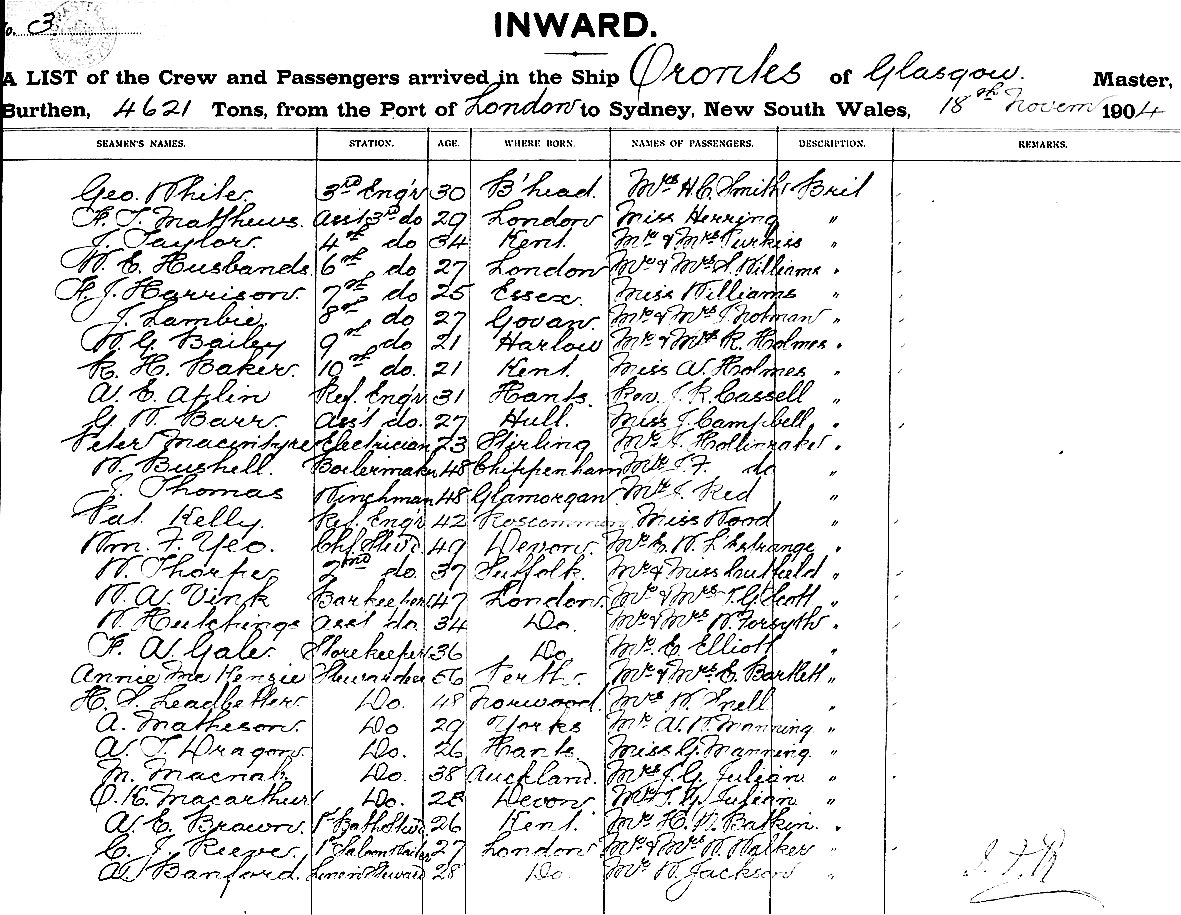 No. 3
INWARD.
A LIST of the Crew and Passengers arrived in the Ship Orontes of Glasgow. Master,
Burthen, 4621 Tons, from the Port of London to Sydney, New South Wales, 18th Novem 1904
SEAMEN'S NAMES. STATION. AGE. WHERE BORN. NAMES OF PASSENGERS. DESCRIPTION. REMARKS.
Geo. White. 3rd Eng'r 30 B'head. Mrs H C Smith Brit
F. T. Matthews. Asst 3rd do 29 London Miss Herring "
J. Taylor. 4th do 34 Kent. Mr & Mrs Purkiss "
W. E. Husbands. 6th do 27 London Mr & Mrs S. Williams "
F. J. Harrison. 7th do 25 Essex. Miss Williams "
J. Lambie. 8th do 27 Govan. Mr & Mrs J. Holman "
W. G. Bailey 9th do 21 Harlow Mr & Mrs R. Holmes "
R. H. Baker. 10th do. 21 Kent. Miss A. Holmes "
A. E. Aplin Ref. Eng'r 31 Hants. Rev. J. R. Cassell "
G. W. Barr. Asst do. 27 Hull. Miss J. Campbell "
Peter Macintyre Electrician 23 Stirling Mr J. Hollinrake "
W. Bushell. Boilermaker 48 Chippenham J. F. do "
Thomas Winchman 48 Glamorgan Mr J. Reid "
Pat. Kelly. Ref. Eng'r 42 Roscommon Miss Wood "
Wm. F. Yeo. Chf. Stew'd 49 Devon. Mr E. W. L'Estrange "
W. Thorpe 2nd do. 37 Suffolk. Mr & Miss "
W. A. Vink Barkeeper 47 London. Mr & Mrs T. G. Scott "
W. Hutchings Asst do. 34 Do. Mr & Mrs W. Forsyth "
F. A. Gale. Storekeeper 36 Do Mr E. Elliott "
Annie McKenzie Stewardess 56 Perth. Mr & Mrs E. Bartlett "
H. S. Leadbetter Do. 48 Norwood. Mrs W. Snell "
A. Matheson. Do 29 Yorks Mr A. W. Manning "
A. T. Dragon. Do. 26 Hants Miss G. Manning "
M. Macnab. Do. 38 Auckland. Mrs J. G. Julian "
O. K. Macarthur Do. 28 Devon J. G. Julian "
A. E. Brown. 1st Bath Stew'd 26 Kent Mr H. W. Batkin. "
C. J. Reeve. 1st Saloon Waiter 27 London Mr & Mrs W. Walker "
A. Banford. Linen Steward 28 Do. Mr W. Jackson "